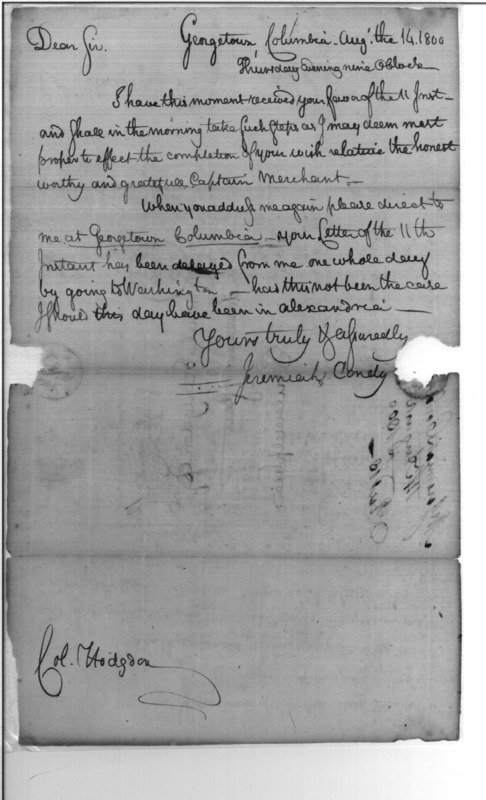 Dear Sir. Georgetown, Columbia. Augt. the 14. 1800
Thursday Evening nine O Clock
I have this moment received your favor of the 11 Inst-
and shall in the morning take such steps as I may deem most
proper to effect the completion of your wish relative the honest
worthy and gratefull Captain Merchant.
When you address me again please direct to
me at Georgetown Columbia - your Letter of the 11th
Instant has been delayed from me one whole day
by going to Washington - had this not been the case
I should this day have been in alexandria -
Yours truly & assuredly
Jeremiah Condy
Col. Hodgdon